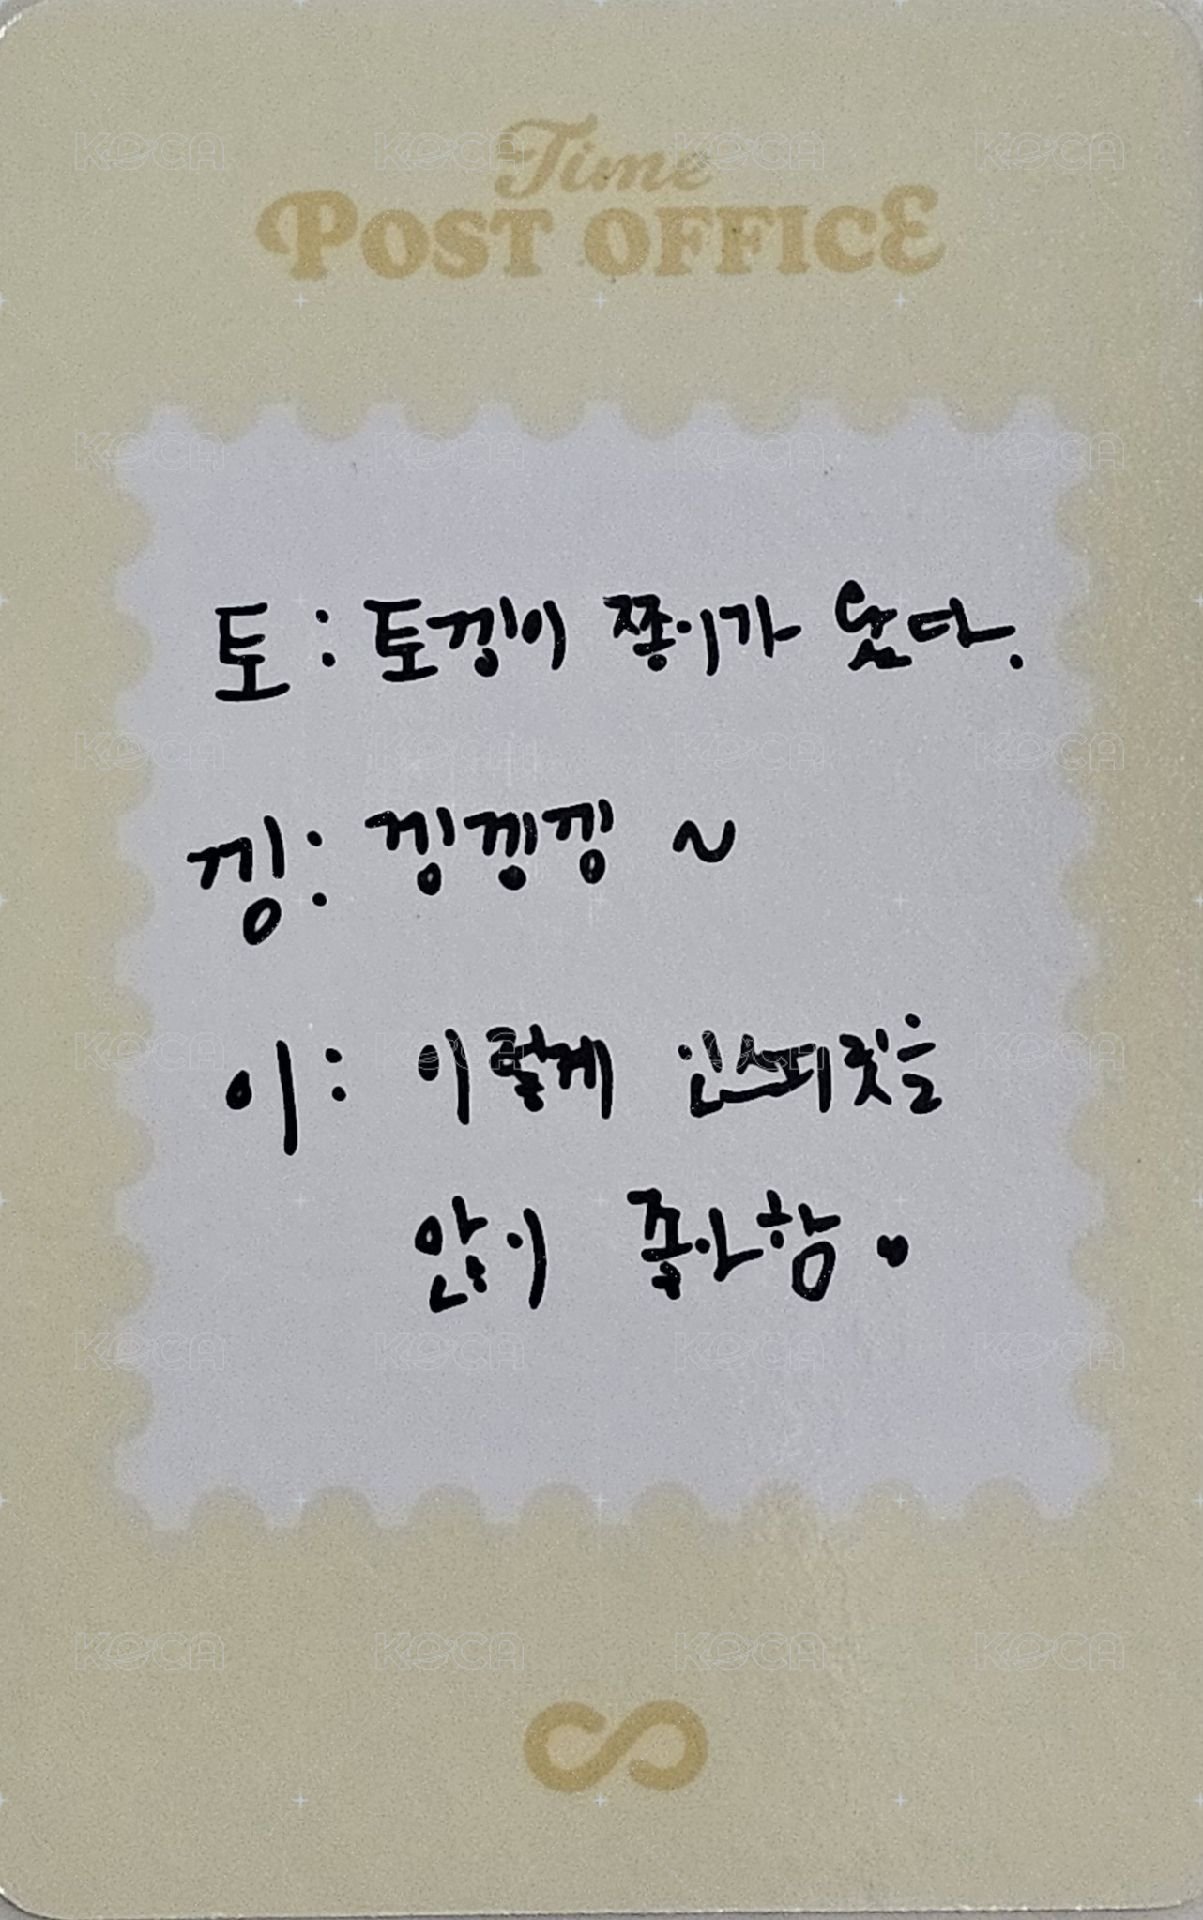 Time
POST OFFICE
토 : 토낑이 쫑이가 왔다.
낑 : 낑낑낑 ~
이 : 이렇게 인스피릿을
많이 좋아함